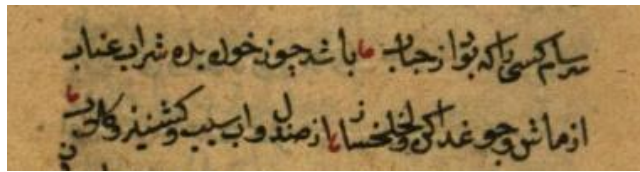 سرسام کسی را که بود از حباب ما باشد چو ز خون بده شراب عناب
از ماش و جو غذا کن و لخلخه ساز ما از صندل و اب سیب و کشنیز و کلاب